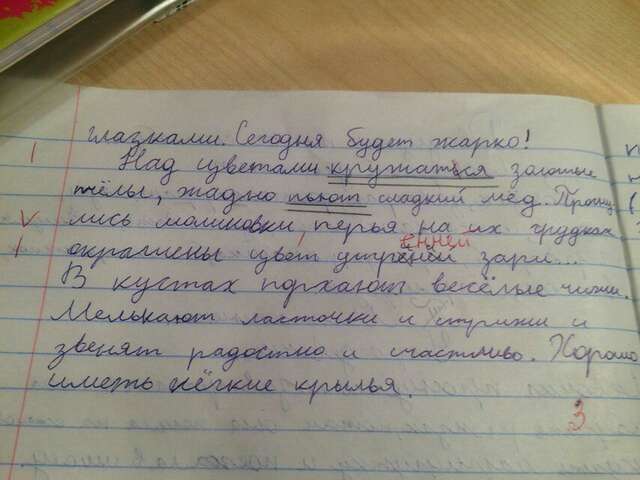 глазками. Сегодня будет жарко!
Над цветами кружаться золотые
пчёлы, жадно пьют сладкий мёд. Просну
лись малиновки, перья на их грудках
окрашены цвет утреней зари...
енней
В кустах порхают весёлые чижи.
Мелькают ласточки и стрижи и
звенят радостно и счастливо. Хорошо
иметь лёгкие крылья.
3